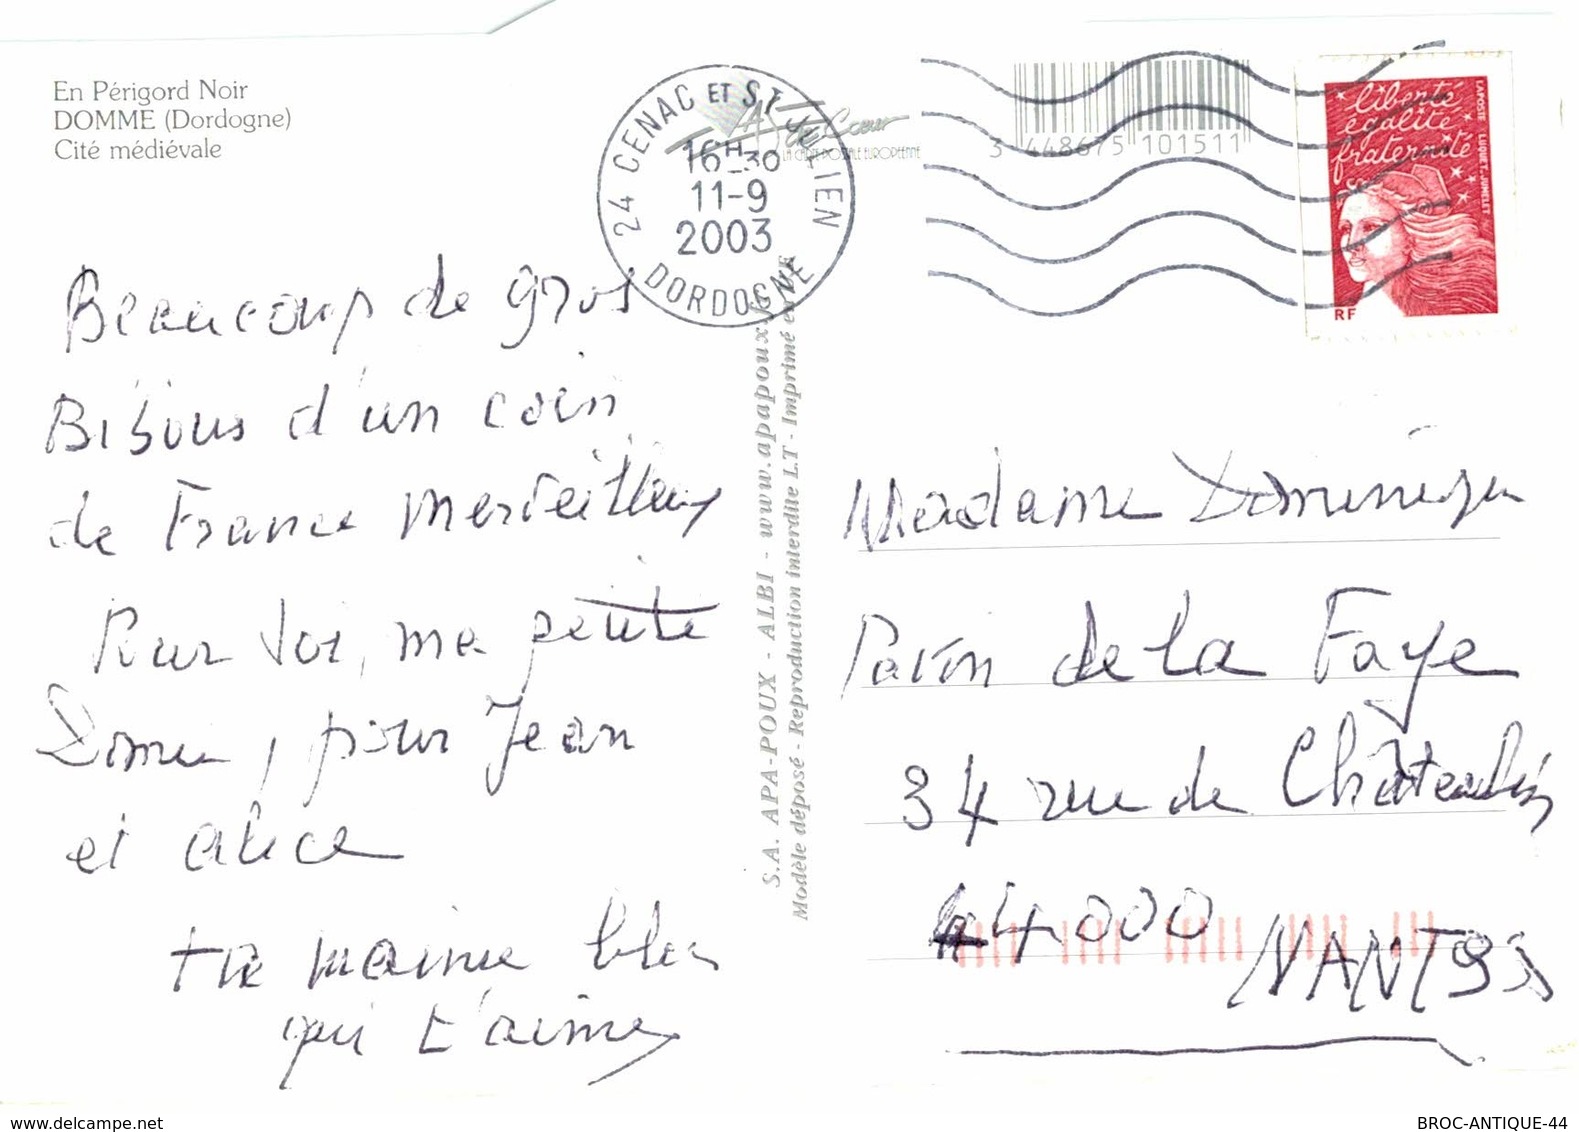 En Périgord Noir
DOMME (Dordogne)
Cité médiévale
24 CENAC ET ST JULIEN
16H30
11-9
2003
DORDOGNE
Cœur
LA CARTE POSTALE EUROPEENNE
3 448675 101511
liberté
égalité
fraternité
LAPOSTE LUQUET_JUMELET
RF
Beaucoup de gros
Bisous d'un coin
de France merveilleux
Pour toi, ma petite
Domi, pour Jean
et alice
ta mamie
qui t'aime
S.A. APA-POUX - ALBI - www.apapoux.fr
Modèle déposé - Reproduction interdite LT - Imprimé en UE
Madame Dominique
de la Faye
34 rue de
44000
NANTES
www.delcampe.net
BROC-ANTIQUE-44